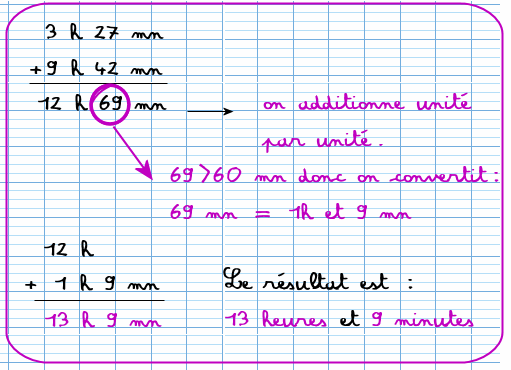 3 h 27 mn
+ 9 h 42 mn
12 h 69 mn → on additionne unité
par unité.
69 > 60 mn donc on convertit :
69 mn = 1h et 9 mn
12 h
+ 1 h 9 mn
Le résultat est :
13 h 9 mn
13 heures et 9 minutes